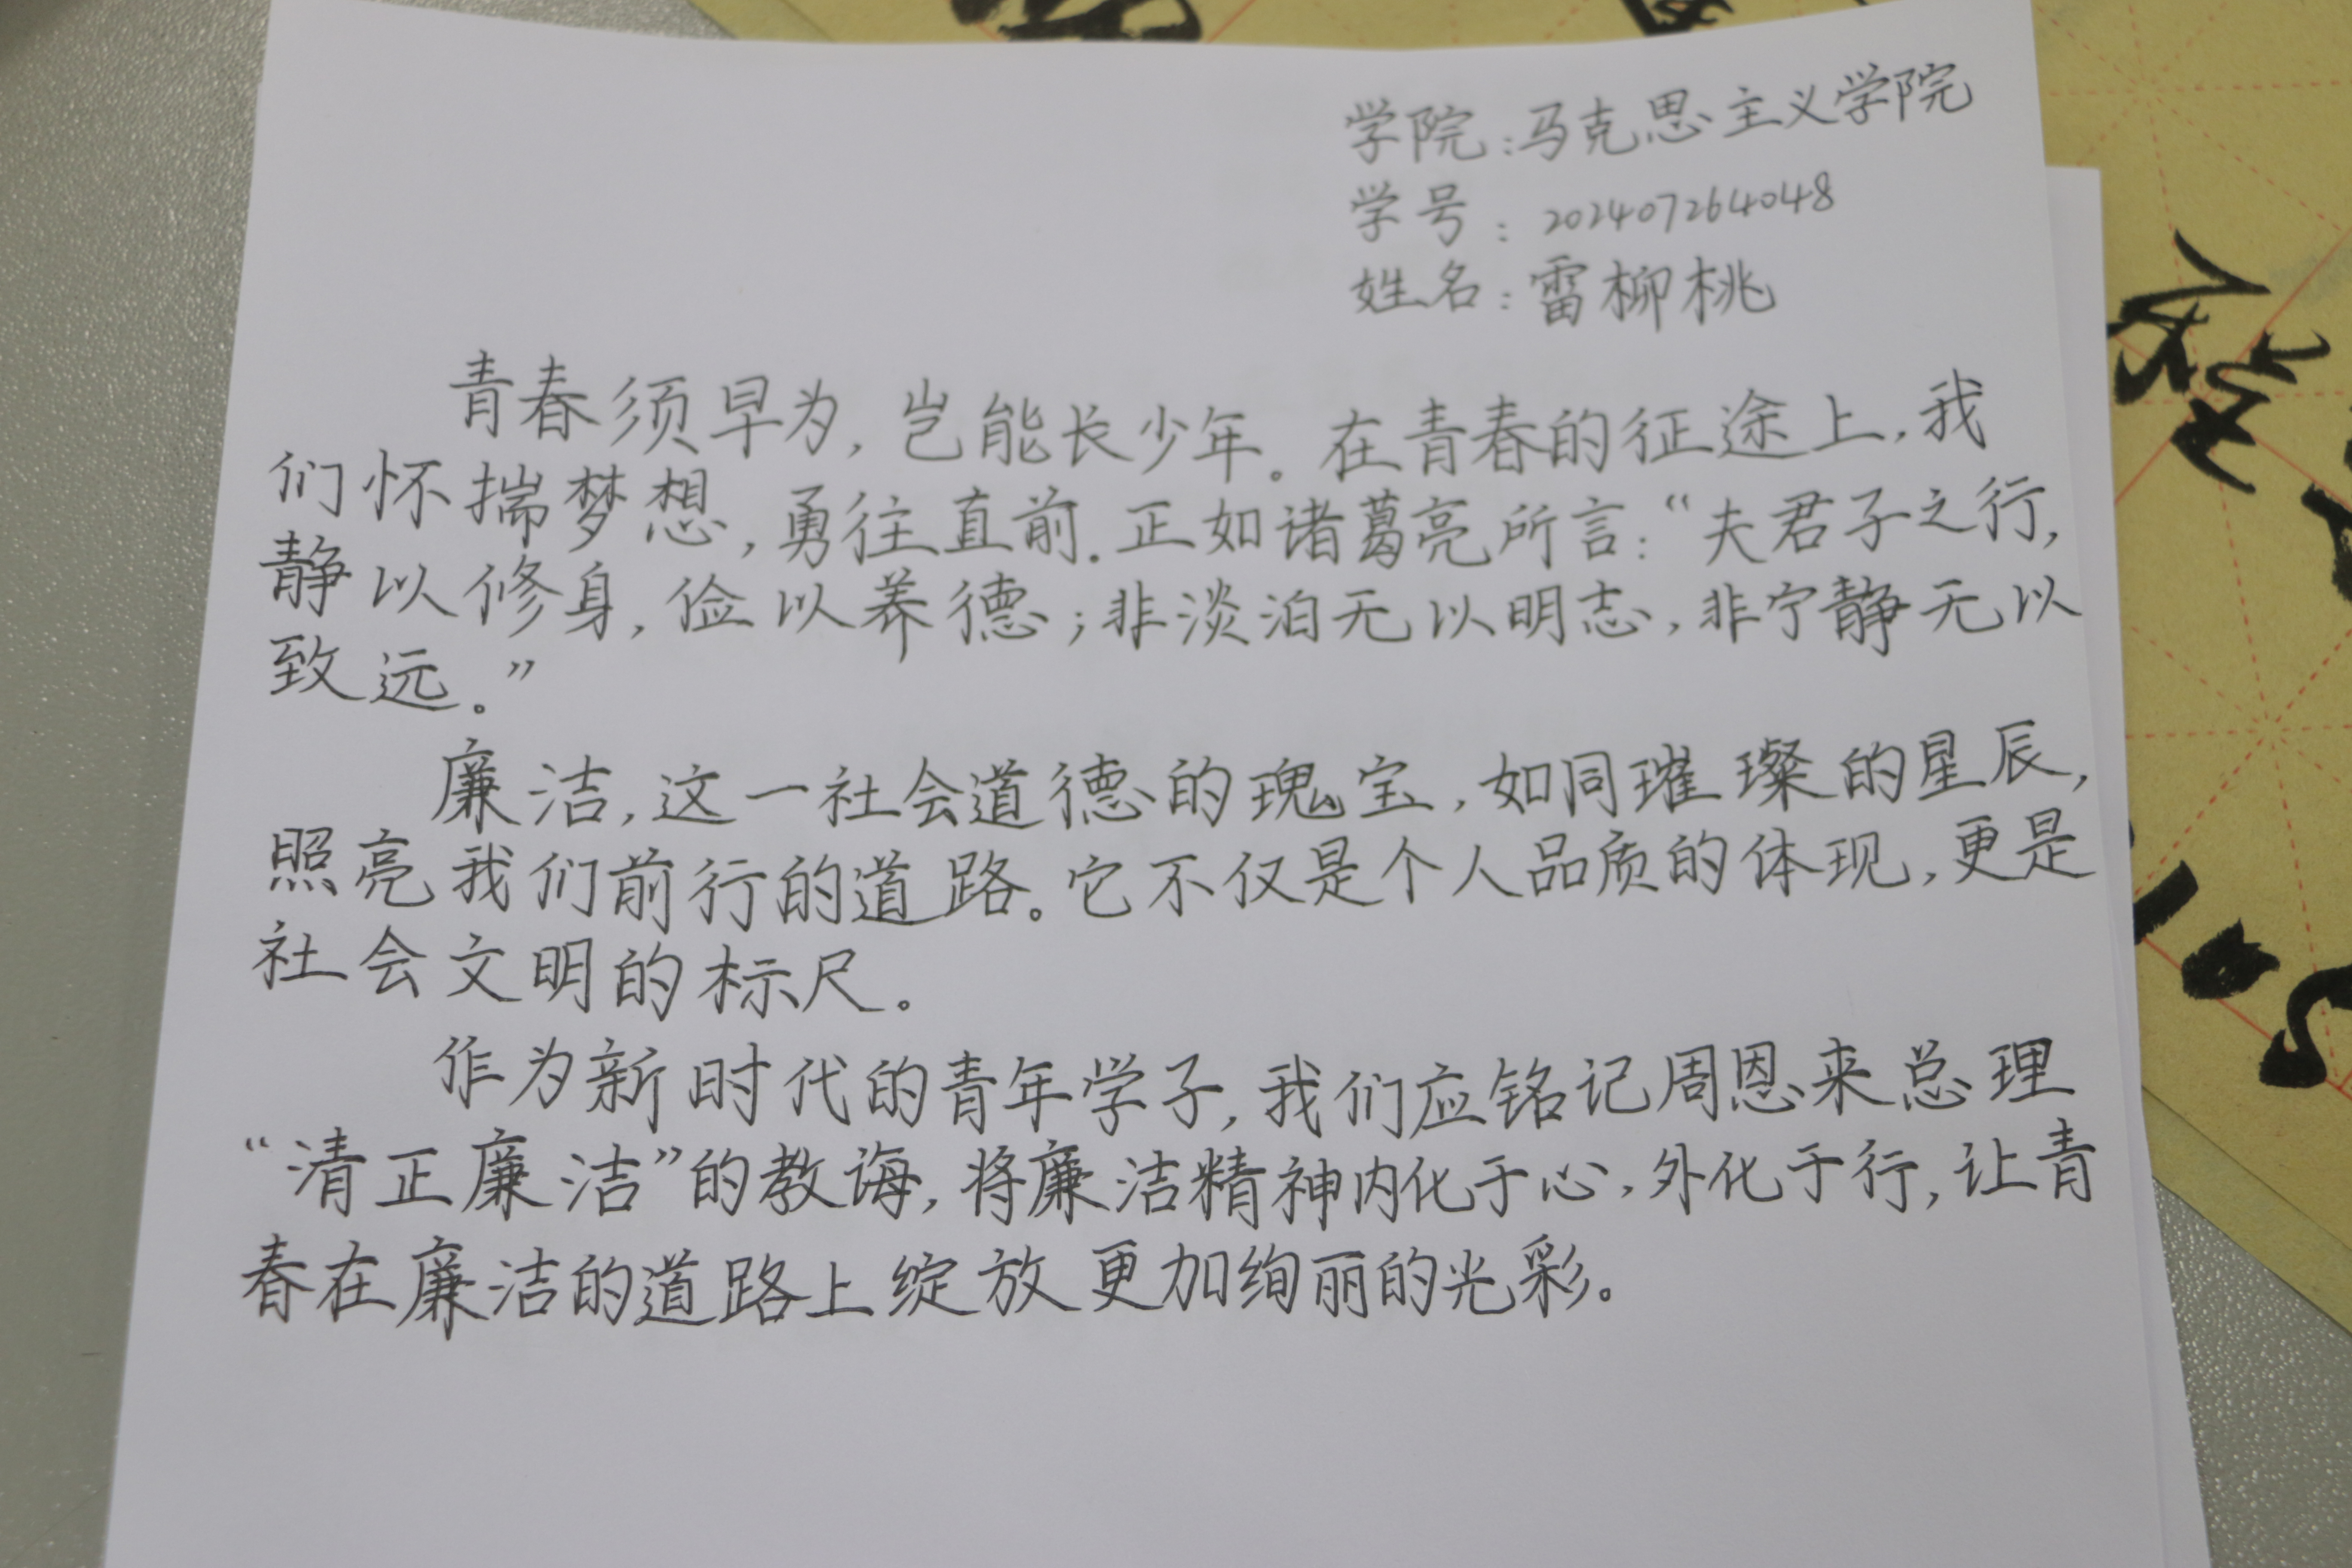 学院：马克思主义学院
学号：202407264048
姓名：雷柳桃
青春须早为，岂能长少年。在青春的征途上，我
们怀揣梦想，勇往直前。正如诸葛亮所言：“夫君子之行，
静以修身，俭以养德；非淡泊无以明志，非宁静无以
致远。”
廉洁，这一社会道德的瑰宝，如同璀璨的星辰，
照亮我们前行的道路。它不仅是个人品质的体现，更是
社会文明的标尺。
作为新时代的青年学子，我们应铭记周恩来总理
“清正廉洁”的教诲，将廉洁精神内化于心，外化于行，让青
春在廉洁的道路上绽放更加绚丽的光彩。